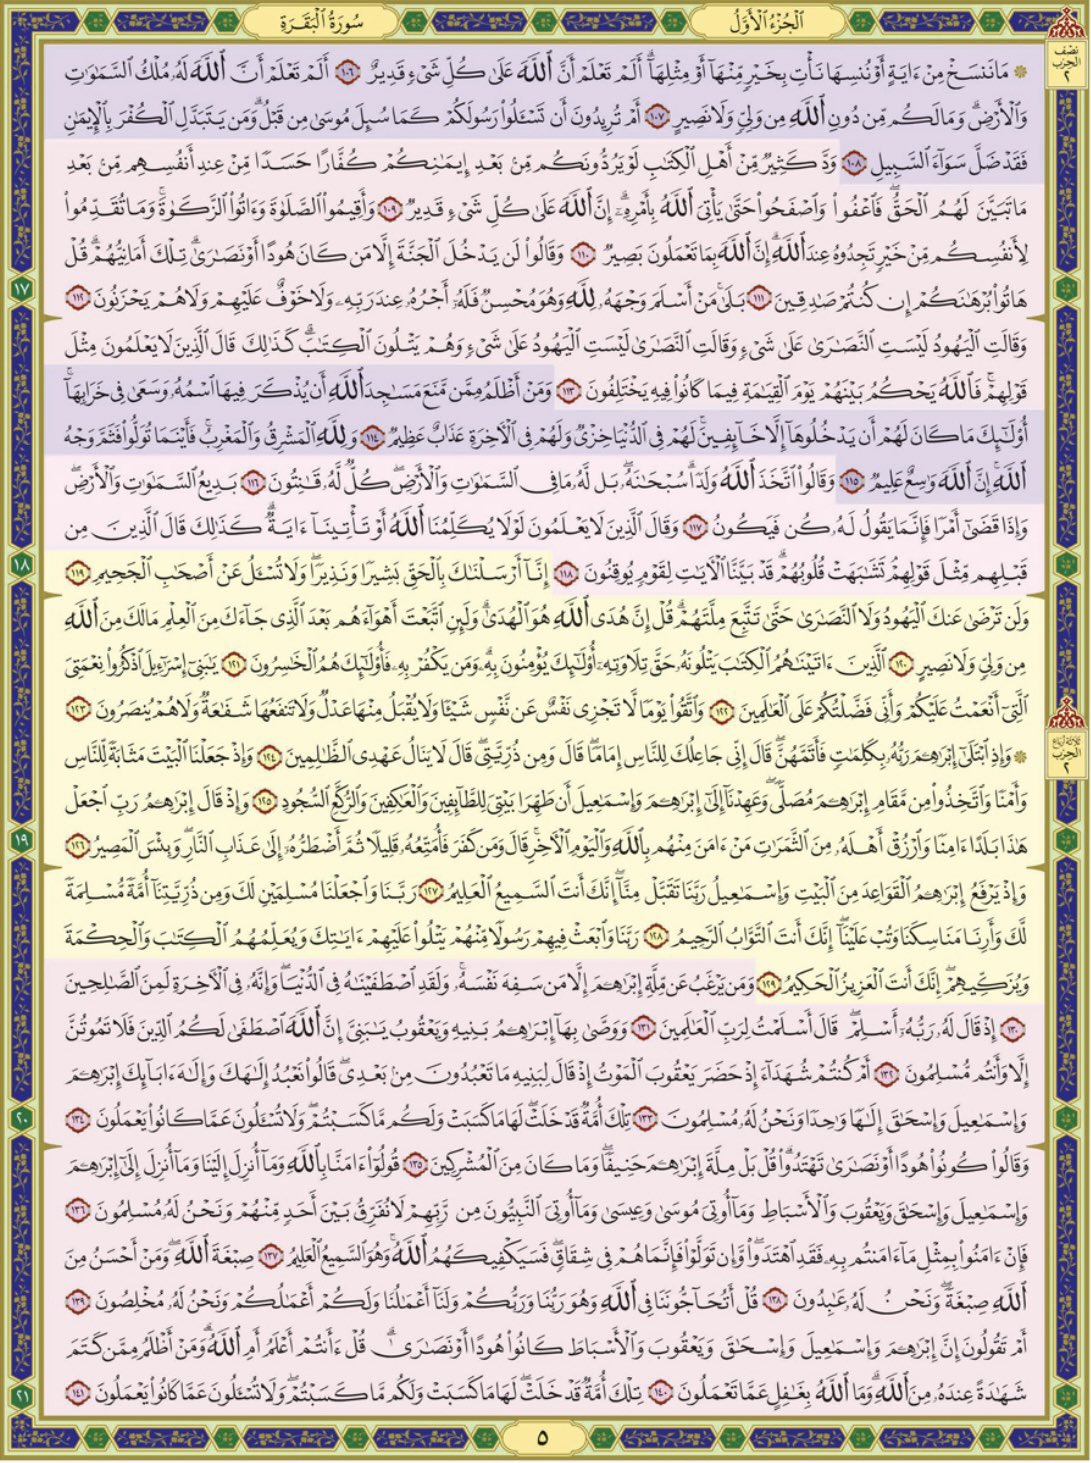 سُورَةُ الْبَقَرَةِ
الْجُزْءُ الْأَوَّلُ
نصف الحزب ٢
۞ مَا نَنسَخْ مِنْ ءَايَةٍ أَوْ نُنسِهَا نَأْتِ بِخَيْرٍ مِّنْهَآ أَوْ مِثْلِهَآ ۗ أَلَمْ تَعْلَمْ أَنَّ ٱللَّهَ عَلَىٰ كُلِّ شَىْءٍ قَدِيرٌ ١٠٦ أَلَمْ تَعْلَمْ أَنَّ ٱللَّهَ لَهُۥ مُلْكُ ٱلسَّمَٰوَٰتِ
وَٱلْأَرْضِ ۗ وَمَا لَكُم مِّن دُونِ ٱللَّهِ مِن وَلِىٍّ وَلَا نَصِيرٍ ١٠٧ أَمْ تُرِيدُونَ أَن تَسْـَٔلُوا۟ رَسُولَكُمْ كَمَا سُئِلَ مُوسَىٰ مِن قَبْلُ ۗ وَمَن يَتَبَدَّلِ ٱلْكُفْرَ بِٱلْإِيمَٰنِ
فَقَدْ ضَلَّ سَوَآءَ ٱلسَّبِيلِ ١٠٨ وَدَّ كَثِيرٌ مِّنْ أَهْلِ ٱلْكِتَٰبِ لَوْ يَرُدُّونَكُم مِّنۢ بَعْدِ إِيمَٰنِكُمْ كُفَّارًا حَسَدًا مِّنْ عِندِ أَنفُسِهِم مِّنۢ بَعْدِ
مَا تَبَيَّنَ لَهُمُ ٱلْحَقُّ ۖ فَٱعْفُوا۟ وَٱصْفَحُوا۟ حَتَّىٰ يَأْتِىَ ٱللَّهُ بِأَمْرِهِۦٓ ۗ إِنَّ ٱللَّهَ عَلَىٰ كُلِّ شَىْءٍ قَدِيرٌ ١٠٩ وَأَقِيمُوا۟ ٱلصَّلَوٰةَ وَءَاتُوا۟ ٱلزَّكَوٰةَ ۚ وَمَا تُقَدِّمُوا۟
لِأَنفُسِكُم مِّنْ خَيْرٍ تَجِدُوهُ عِندَ ٱللَّهِ ۗ إِنَّ ٱللَّهَ بِمَا تَعْمَلُونَ بَصِيرٌ ١١٠ وَقَالُوا۟ لَن يَدْخُلَ ٱلْجَنَّةَ إِلَّا مَن كَانَ هُودًا أَوْ نَصَٰرَىٰ ۗ تِلْكَ أَمَانِيُّهُمْ ۗ قُلْ
١٧
هَاتُوا۟ بُرْهَٰنَكُمْ إِن كُنتُمْ صَٰدِقِينَ ١١١ بَلَىٰ مَنْ أَسْلَمَ وَجْهَهُۥ لِلَّهِ وَهُوَ مُحْسِنٌ فَلَهُۥٓ أَجْرُهُۥ عِندَ رَبِّهِۦ وَلَا خَوْفٌ عَلَيْهِمْ وَلَا هُمْ يَحْزَنُونَ ١١٢
وَقَالَتِ ٱلْيَهُودُ لَيْسَتِ ٱلنَّصَٰرَىٰ عَلَىٰ شَىْءٍ وَقَالَتِ ٱلنَّصَٰرَىٰ لَيْسَتِ ٱلْيَهُودُ عَلَىٰ شَىْءٍ وَهُمْ يَتْلُونَ ٱلْكِتَٰبَ ۗ كَذَٰلِكَ قَالَ ٱلَّذِينَ لَا يَعْلَمُونَ مِثْلَ
قَوْلِهِمْ ۚ فَٱللَّهُ يَحْكُمُ بَيْنَهُمْ يَوْمَ ٱلْقِيَٰمَةِ فِيمَا كَانُوا۟ فِيهِ يَخْتَلِفُونَ ١١٣ وَمَنْ أَظْلَمُ مِمَّن مَّنَعَ مَسَٰجِدَ ٱللَّهِ أَن يُذْكَرَ فِيهَا ٱسْمُهُۥ وَسَعَىٰ فِى خَرَابِهَآ ۚ
أُو۟لَٰٓئِكَ مَا كَانَ لَهُمْ أَن يَدْخُلُوهَآ إِلَّا خَآئِفِينَ ۚ لَهُمْ فِى ٱلدُّنْيَا خِزْىٌ وَلَهُمْ فِى ٱلْءَاخِرَةِ عَذَابٌ عَظِيمٌ ١١٤ وَلِلَّهِ ٱلْمَشْرِقُ وَٱلْمَغْرِبُ ۚ فَأَيْنَمَا تُوَلُّوا۟ فَثَمَّ وَجْهُ
ٱللَّهِ ۚ إِنَّ ٱللَّهَ وَٰسِعٌ عَلِيمٌ ١١٥ وَقَالُوا۟ ٱتَّخَذَ ٱللَّهُ وَلَدًا ۗ سُبْحَٰنَهُۥ ۖ بَل لَّهُۥ مَا فِى ٱلسَّمَٰوَٰتِ وَٱلْأَرْضِ ۖ كُلٌّ لَّهُۥ قَٰنِتُونَ ١١٦ بَدِيعُ ٱلسَّمَٰوَٰتِ وَٱلْأَرْضِ ۖ
وَإِذَا قَضَىٰٓ أَمْرًا فَإِنَّمَا يَقُولُ لَهُۥ كُن فَيَكُونُ ١١٧ وَقَالَ ٱلَّذِينَ لَا يَعْلَمُونَ لَوْلَا يُكَلِّمُنَا ٱللَّهُ أَوْ تَأْتِينَآ ءَايَةٌ ۗ كَذَٰلِكَ قَالَ ٱلَّذِينَ مِن
١٨
قَبْلِهِم مِّثْلَ قَوْلِهِمْ ۘ تَشَٰبَهَتْ قُلُوبُهُمْ ۗ قَدْ بَيَّنَّا ٱلْءَايَٰتِ لِقَوْمٍ يُوقِنُونَ ١١٨ إِنَّآ أَرْسَلْنَٰكَ بِٱلْحَقِّ بَشِيرًا وَنَذِيرًا ۖ وَلَا تُسْـَٔلُ عَنْ أَصْحَٰبِ ٱلْجَحِيمِ ١١٩
وَلَن تَرْضَىٰ عَنكَ ٱلْيَهُودُ وَلَا ٱلنَّصَٰرَىٰ حَتَّىٰ تَتَّبِعَ مِلَّتَهُمْ ۗ قُلْ إِنَّ هُدَى ٱللَّهِ هُوَ ٱلْهُدَىٰ ۗ وَلَئِنِ ٱتَّبَعْتَ أَهْوَآءَهُم بَعْدَ ٱلَّذِى جَآءَكَ مِنَ ٱلْعِلْمِ ۙ مَا لَكَ مِنَ ٱللَّهِ
مِن وَلِىٍّ وَلَا نَصِيرٍ ١٢٠ ٱلَّذِينَ ءَاتَيْنَٰهُمُ ٱلْكِتَٰبَ يَتْلُونَهُۥ حَقَّ تِلَاوَتِهِۦٓ أُو۟لَٰٓئِكَ يُؤْمِنُونَ بِهِۦ ۗ وَمَن يَكْفُرْ بِهِۦ فَأُو۟لَٰٓئِكَ هُمُ ٱلْخَٰسِرُونَ ١٢١ يَٰبَنِىٓ إِسْرَٰٓءِيلَ ٱذْكُرُوا۟ نِعْمَتِىَ
ٱلَّتِىٓ أَنْعَمْتُ عَلَيْكُمْ وَأَنِّى فَضَّلْتُكُمْ عَلَى ٱلْعَٰلَمِينَ ١٢٢ وَٱتَّقُوا۟ يَوْمًا لَّا تَجْزِى نَفْسٌ عَن نَّفْسٍ شَيْـًٔا وَلَا يُقْبَلُ مِنْهَا عَدْلٌ وَلَا تَنفَعُهَا شَفَٰعَةٌ وَلَا هُمْ يُنصَرُونَ ١٢٣
ثلاثة أرباع الحزب ٢
۞ وَإِذِ ٱبْتَلَىٰٓ إِبْرَٰهِۦمَ رَبُّهُۥ بِكَلِمَٰتٍ فَأَتَمَّهُنَّ ۖ قَالَ إِنِّى جَاعِلُكَ لِلنَّاسِ إِمَامًا ۖ قَالَ وَمِن ذُرِّيَّتِى ۖ قَالَ لَا يَنَالُ عَهْدِى ٱلظَّٰلِمِينَ ١٢٤ وَإِذْ جَعَلْنَا ٱلْبَيْتَ مَثَابَةً لِّلنَّاسِ
وَأَمْنًا وَٱتَّخِذُوا۟ مِن مَّقَامِ إِبْرَٰهِۦمَ مُصَلًّى ۖ وَعَهِدْنَآ إِلَىٰٓ إِبْرَٰهِۦمَ وَإِسْمَٰعِيلَ أَن طَهِّرَا بَيْتِىَ لِلطَّآئِفِينَ وَٱلْعَٰكِفِينَ وَٱلرُّكَّعِ ٱلسُّجُودِ ١٢٥ وَإِذْ قَالَ إِبْرَٰهِۦمُ رَبِّ ٱجْعَلْ
١٩
هَٰذَا بَلَدًا ءَامِنًا وَٱرْزُقْ أَهْلَهُۥ مِنَ ٱلثَّمَرَٰتِ مَنْ ءَامَنَ مِنْهُم بِٱللَّهِ وَٱلْيَوْمِ ٱلْءَاخِرِ ۖ قَالَ وَمَن كَفَرَ فَأُمَتِّعُهُۥ قَلِيلًا ثُمَّ أَضْطَرُّهُۥٓ إِلَىٰ عَذَابِ ٱلنَّارِ ۖ وَبِئْسَ ٱلْمَصِيرُ ١٢٦
وَإِذْ يَرْفَعُ إِبْرَٰهِۦمُ ٱلْقَوَاعِدَ مِنَ ٱلْبَيْتِ وَإِسْمَٰعِيلُ رَبَّنَا تَقَبَّلْ مِنَّآ ۖ إِنَّكَ أَنتَ ٱلسَّمِيعُ ٱلْعَلِيمُ ١٢٧ رَبَّنَا وَٱجْعَلْنَا مُسْلِمَيْنِ لَكَ وَمِن ذُرِّيَّتِنَآ أُمَّةً مُّسْلِمَةً
لَّكَ وَأَرِنَا مَنَاسِكَنَا وَتُبْ عَلَيْنَآ ۖ إِنَّكَ أَنتَ ٱلتَّوَّابُ ٱلرَّحِيمُ ١٢٨ رَبَّنَا وَٱبْعَثْ فِيهِمْ رَسُولًا مِّنْهُمْ يَتْلُوا۟ عَلَيْهِمْ ءَايَٰتِكَ وَيُعَلِّمُهُمُ ٱلْكِتَٰبَ وَٱلْحِكْمَةَ
وَيُزَكِّيهِمْ ۚ إِنَّكَ أَنتَ ٱلْعَزِيزُ ٱلْحَكِيمُ ١٢٩ وَمَن يَرْغَبُ عَن مِّلَّةِ إِبْرَٰهِۦمَ إِلَّا مَن سَفِهَ نَفْسَهُۥ ۚ وَلَقَدِ ٱصْطَفَيْنَٰهُ فِى ٱلدُّنْيَا ۖ وَإِنَّهُۥ فِى ٱلْءَاخِرَةِ لَمِنَ ٱلصَّٰلِحِينَ
١٣٠ إِذْ قَالَ لَهُۥ رَبُّهُۥٓ أَسْلِمْ ۖ قَالَ أَسْلَمْتُ لِرَبِّ ٱلْعَٰلَمِينَ ١٣١ وَوَصَّىٰ بِهَآ إِبْرَٰهِۦمُ بَنِيهِ وَيَعْقُوبُ يَٰبَنِىَّ إِنَّ ٱللَّهَ ٱصْطَفَىٰ لَكُمُ ٱلدِّينَ فَلَا تَمُوتُنَّ
إِلَّا وَأَنتُم مُّسْلِمُونَ ١٣٢ أَمْ كُنتُمْ شُهَدَآءَ إِذْ حَضَرَ يَعْقُوبَ ٱلْمَوْتُ إِذْ قَالَ لِبَنِيهِ مَا تَعْبُدُونَ مِنۢ بَعْدِى قَالُوا۟ نَعْبُدُ إِلَٰهَكَ وَإِلَٰهَ ءَابَآئِكَ إِبْرَٰهِۦمَ
٢٠
وَإِسْمَٰعِيلَ وَإِسْحَٰقَ إِلَٰهًا وَٰحِدًا وَنَحْنُ لَهُۥ مُسْلِمُونَ ١٣٣ تِلْكَ أُمَّةٌ قَدْ خَلَتْ ۖ لَهَا مَا كَسَبَتْ وَلَكُم مَّا كَسَبْتُمْ ۖ وَلَا تُسْـَٔلُونَ عَمَّا كَانُوا۟ يَعْمَلُونَ ١٣٤
وَقَالُوا۟ كُونُوا۟ هُودًا أَوْ نَصَٰرَىٰ تَهْتَدُوا۟ ۗ قُلْ بَلْ مِلَّةَ إِبْرَٰهِۦمَ حَنِيفًا ۖ وَمَا كَانَ مِنَ ٱلْمُشْرِكِينَ ١٣٥ قُولُوٓا۟ ءَامَنَّا بِٱللَّهِ وَمَآ أُنزِلَ إِلَيْنَا وَمَآ أُنزِلَ إِلَىٰٓ إِبْرَٰهِۦمَ
وَإِسْمَٰعِيلَ وَإِسْحَٰقَ وَيَعْقُوبَ وَٱلْأَسْبَاطِ وَمَآ أُوتِىَ مُوسَىٰ وَعِيسَىٰ وَمَآ أُوتِىَ ٱلنَّبِيُّونَ مِن رَّبِّهِمْ لَا نُفَرِّقُ بَيْنَ أَحَدٍ مِّنْهُمْ وَنَحْنُ لَهُۥ مُسْلِمُونَ ١٣٦
فَإِنْ ءَامَنُوا۟ بِمِثْلِ مَآ ءَامَنتُم بِهِۦ فَقَدِ ٱهْتَدَوا۟ ۖ وَّإِن تَوَلَّوْا۟ فَإِنَّمَا هُمْ فِى شِقَاقٍ ۖ فَسَيَكْفِيكَهُمُ ٱللَّهُ ۚ وَهُوَ ٱلسَّمِيعُ ٱلْعَلِيمُ ١٣٧ صِبْغَةَ ٱللَّهِ ۖ وَمَنْ أَحْسَنُ مِنَ
ٱللَّهِ صِبْغَةً ۖ وَنَحْنُ لَهُۥ عَٰبِدُونَ ١٣٨ قُلْ أَتُحَآجُّونَنَا فِى ٱللَّهِ وَهُوَ رَبُّنَا وَرَبُّكُمْ وَلَنَآ أَعْمَٰلُنَا وَلَكُمْ أَعْمَٰلُكُمْ وَنَحْنُ لَهُۥ مُخْلِصُونَ ١٣٩
أَمْ تَقُولُونَ إِنَّ إِبْرَٰهِۦمَ وَإِسْمَٰعِيلَ وَإِسْحَٰقَ وَيَعْقُوبَ وَٱلْأَسْبَاطَ كَانُوا۟ هُودًا أَوْ نَصَٰرَىٰ ۗ قُلْ ءَأَنتُمْ أَعْلَمُ أَمِ ٱللَّهُ ۗ وَمَنْ أَظْلَمُ مِمَّن كَتَمَ
٢١
شَهَٰدَةً عِندَهُۥ مِنَ ٱللَّهِ ۗ وَمَا ٱللَّهُ بِغَٰفِلٍ عَمَّا تَعْمَلُونَ ١٤٠ تِلْكَ أُمَّةٌ قَدْ خَلَتْ ۖ لَهَا مَا كَسَبَتْ وَلَكُم مَّا كَسَبْتُمْ ۖ وَلَا تُسْـَٔلُونَ عَمَّا كَانُوا۟ يَعْمَلُونَ ١٤١
٥